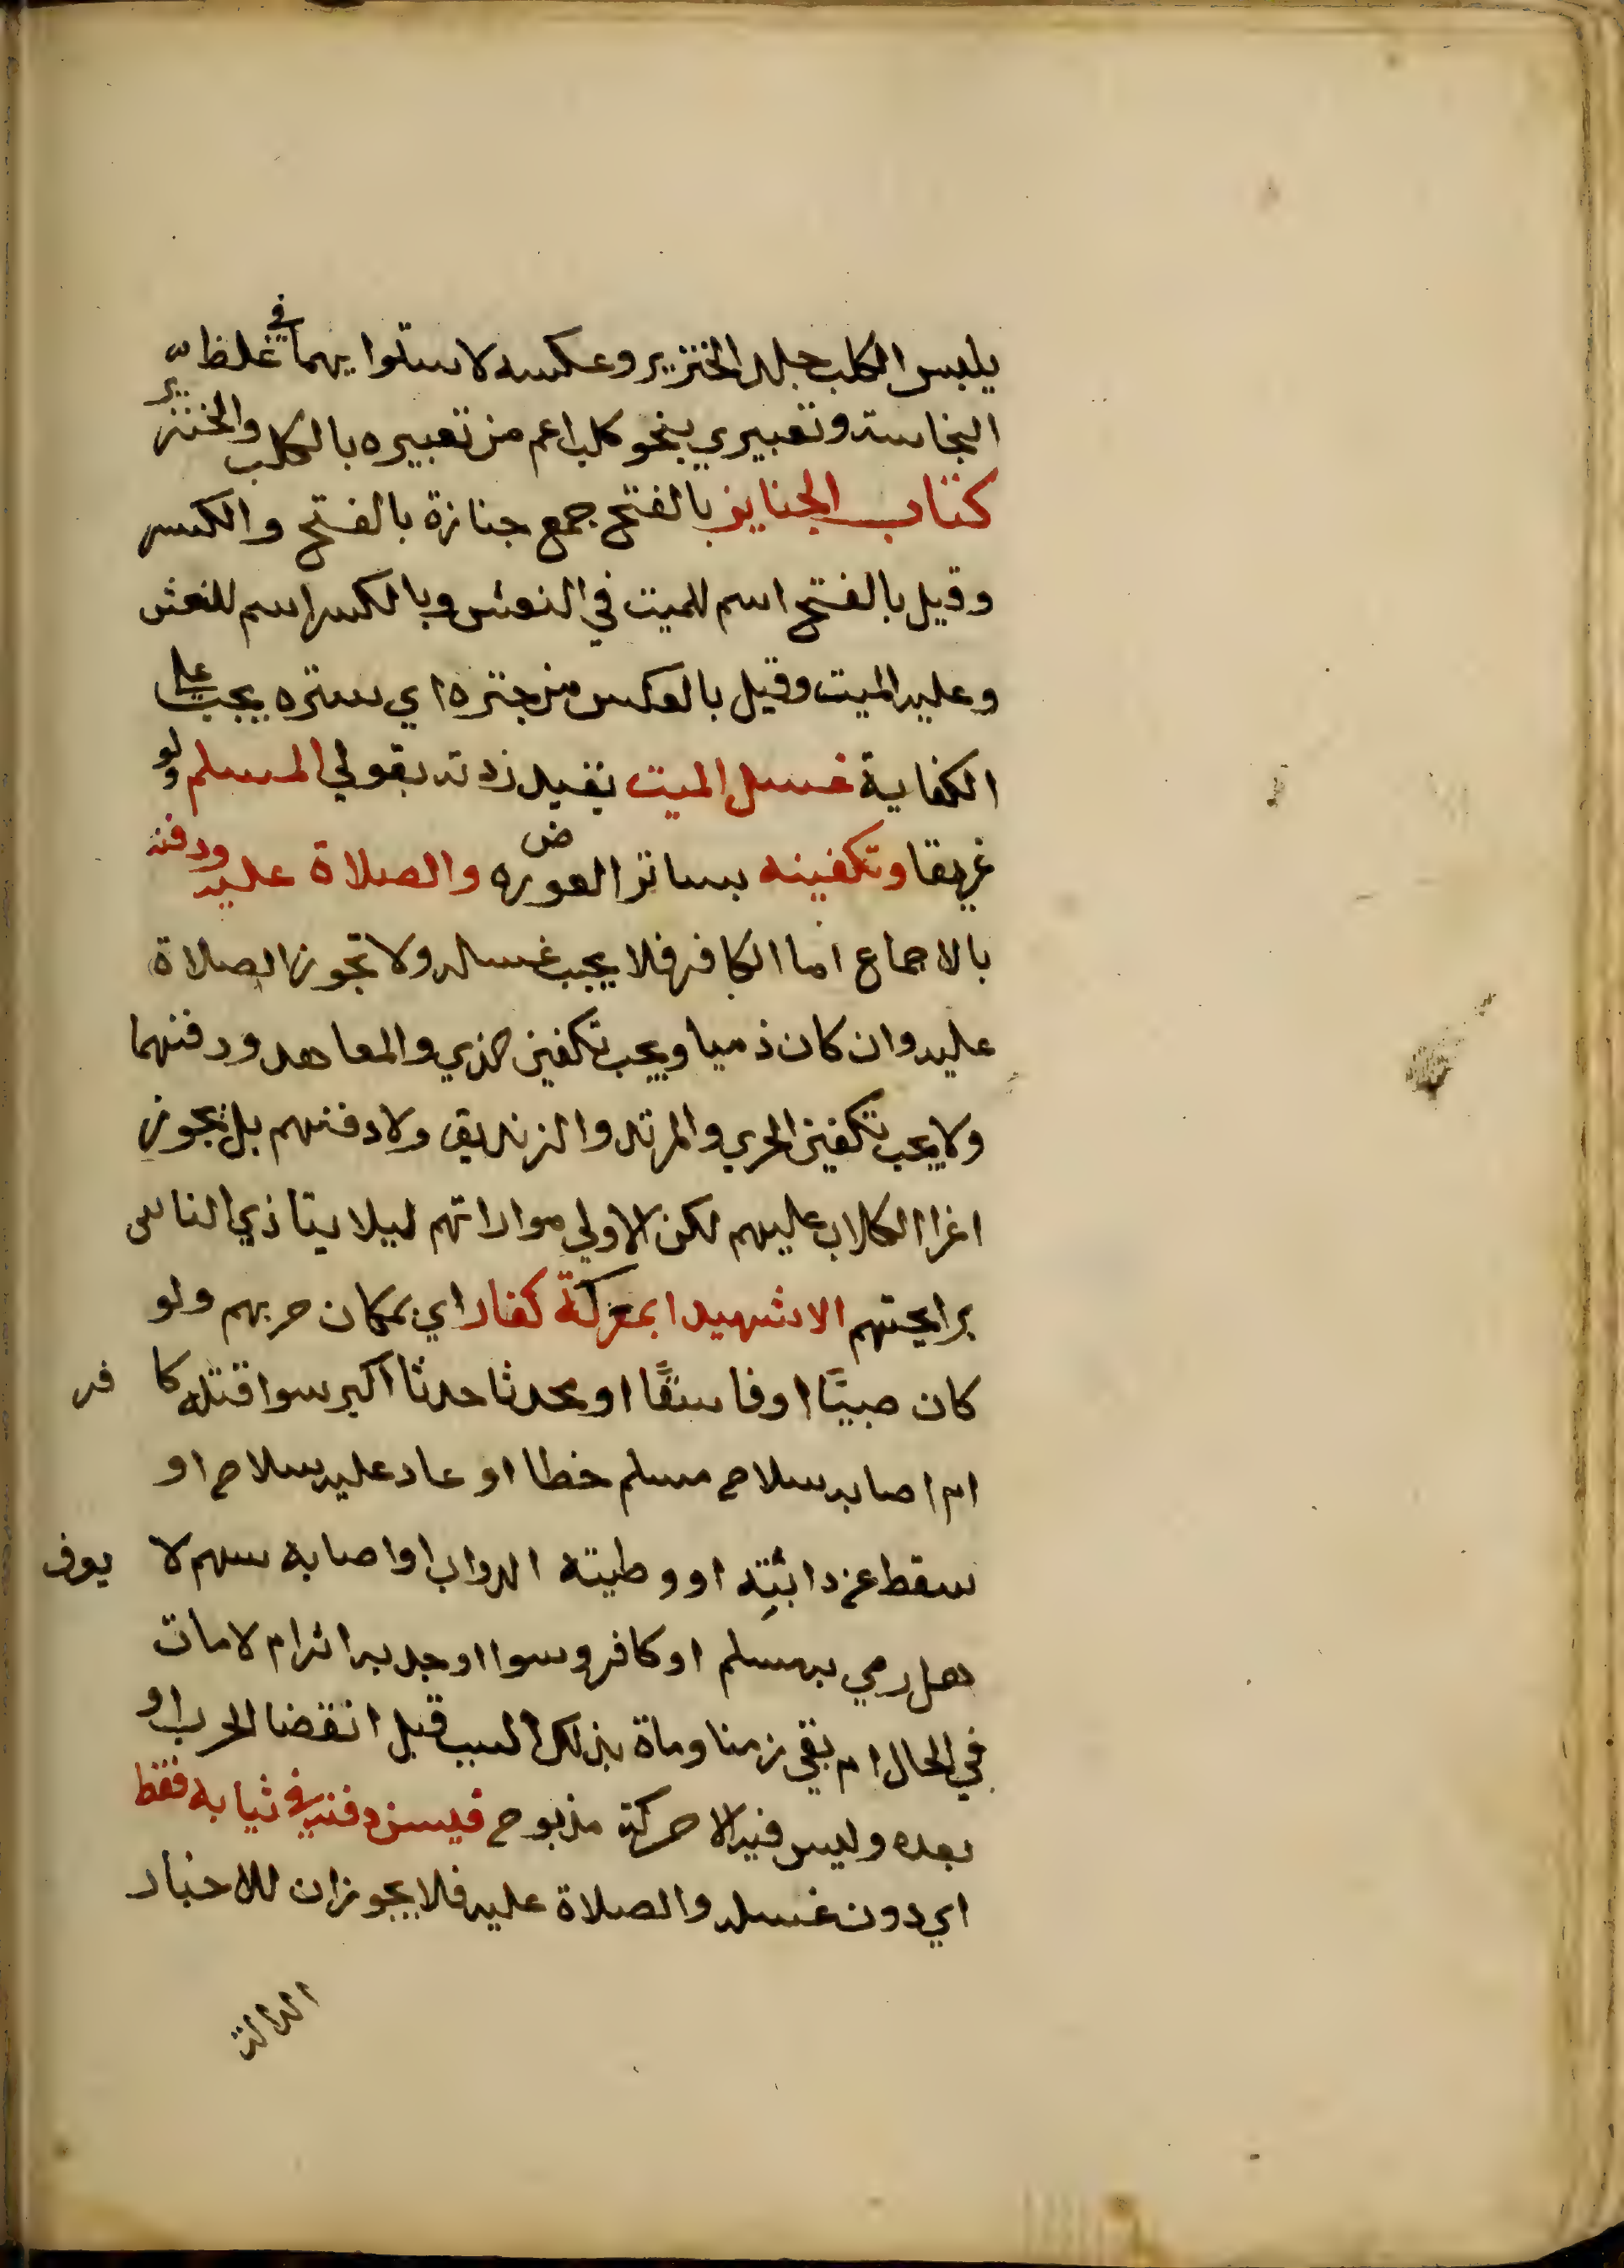 يلبس الكلب جلد الخنزير وعكسه لاستوايهما في غلظ
النجاسة وتعبيري بنحو كلب اعم من تعبيره بالكلب والخنزير
كتاب الجنايز بالفتح جمع جنازة بالفتح والكسر
وقيل بالفتح اسم للميت في النعش وبالكسر اسم للنعش
وعليه الميت وقيل بالعكس من جنزه اي ستره يجب علي
الكفاية غسل الميت بقيد زدته بقولي المسلم ولو
غريقا وتكفينه بساتر العوره والصلاة عليه ودفنه
بالاجماع اما الكافر فلا يجب غسله ولا تجوز الصلاة
عليه وان كان ذميا ويجب تكفين الذمي والمعاهد ودفنهما
ولا يجب تكفين الحربي والمرتد والزنديق ولا دفنهم بل يجوز
اغرا الكلاب عليهم لكن الاولي مواراتهم ليلا يتاذي الناس
برايحتهم الا شهيدا بمعركة كفار اي بمكان حربهم ولو
كان صبيًا او فاسقًا او محدثا حدثا اكبر سوا قتله كافر
ام اصابه سلاح مسلم خطا او عاد عليه سلاح او
سقط عن دابته او وطيته الدواب او اصابه سهم لا يعرف
هل رمي به مسلم او كافر وسوا اوجد به اثر ام لا مات
في الحال ام بقي زمنا وماة بذلك السبب قبل انقضا الحرب او
بعده وليس فيه الا حركة مذبوح فيسن دفنه في ثيابه فقط
اي دون غسله والصلاة عليه فلا يجوزان للاخبار
الدالة